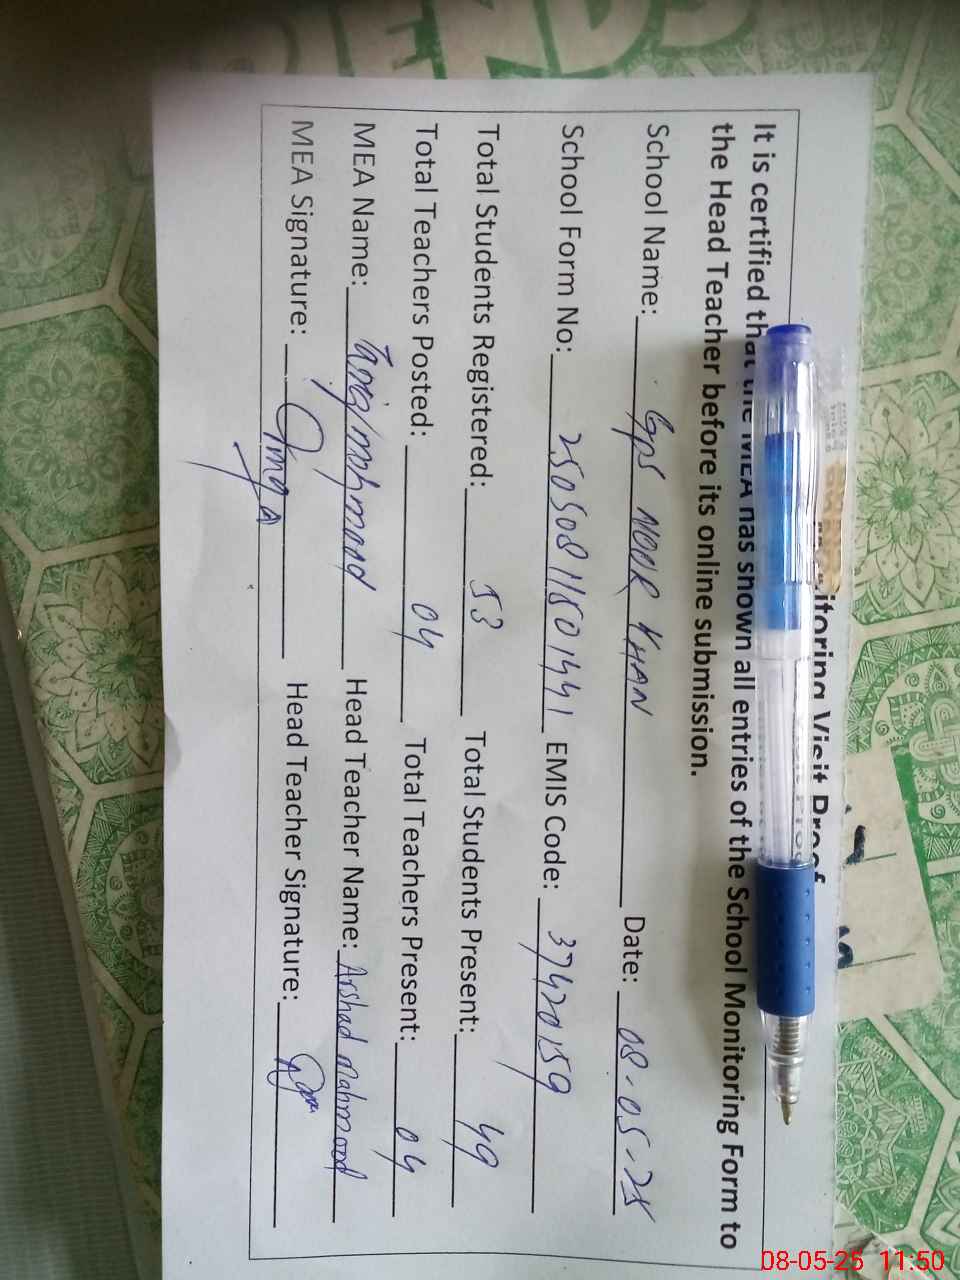 itoring Visit Proof
It is certified that the MEA has shown all entries of the School Monitoring Form to
the Head Teacher before its online submission.
School Name: GPS NOOR KHAN Date: 08-05-25
School Form No: 25050811501441 EMIS Code: 37420159
Total Students Registered: 53 Total Students Present: 49
Total Teachers Posted: 04 Total Teachers Present: 04
MEA Name: Head Teacher Name: Arshad Mahmood
MEA Signature: Head Teacher Signature:
08-05-25 11:50